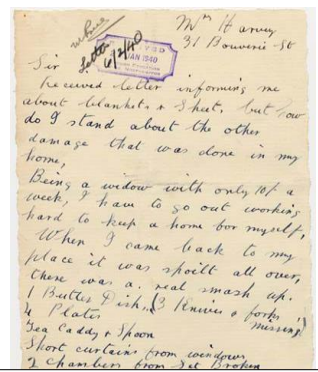 Mrs Harvey
31 Bouverie St
Letter
6/2/40
JAN 1940
Sir
Received letter informing me
about blankets & Sheet. but how
do I stand about the other
damage that was done in my
home,
Being a widow with only 10/ a
week, I have to go out working
hard to keep a home for myself,
When I came back to my
place it was spoilt all over,
there was a real smash up.
1 Butter Dish, (3 Knives & forks
missing)
4 Plates
Tea Caddy & Spoon
Short curtains from windows
2 chambers from Set Broken